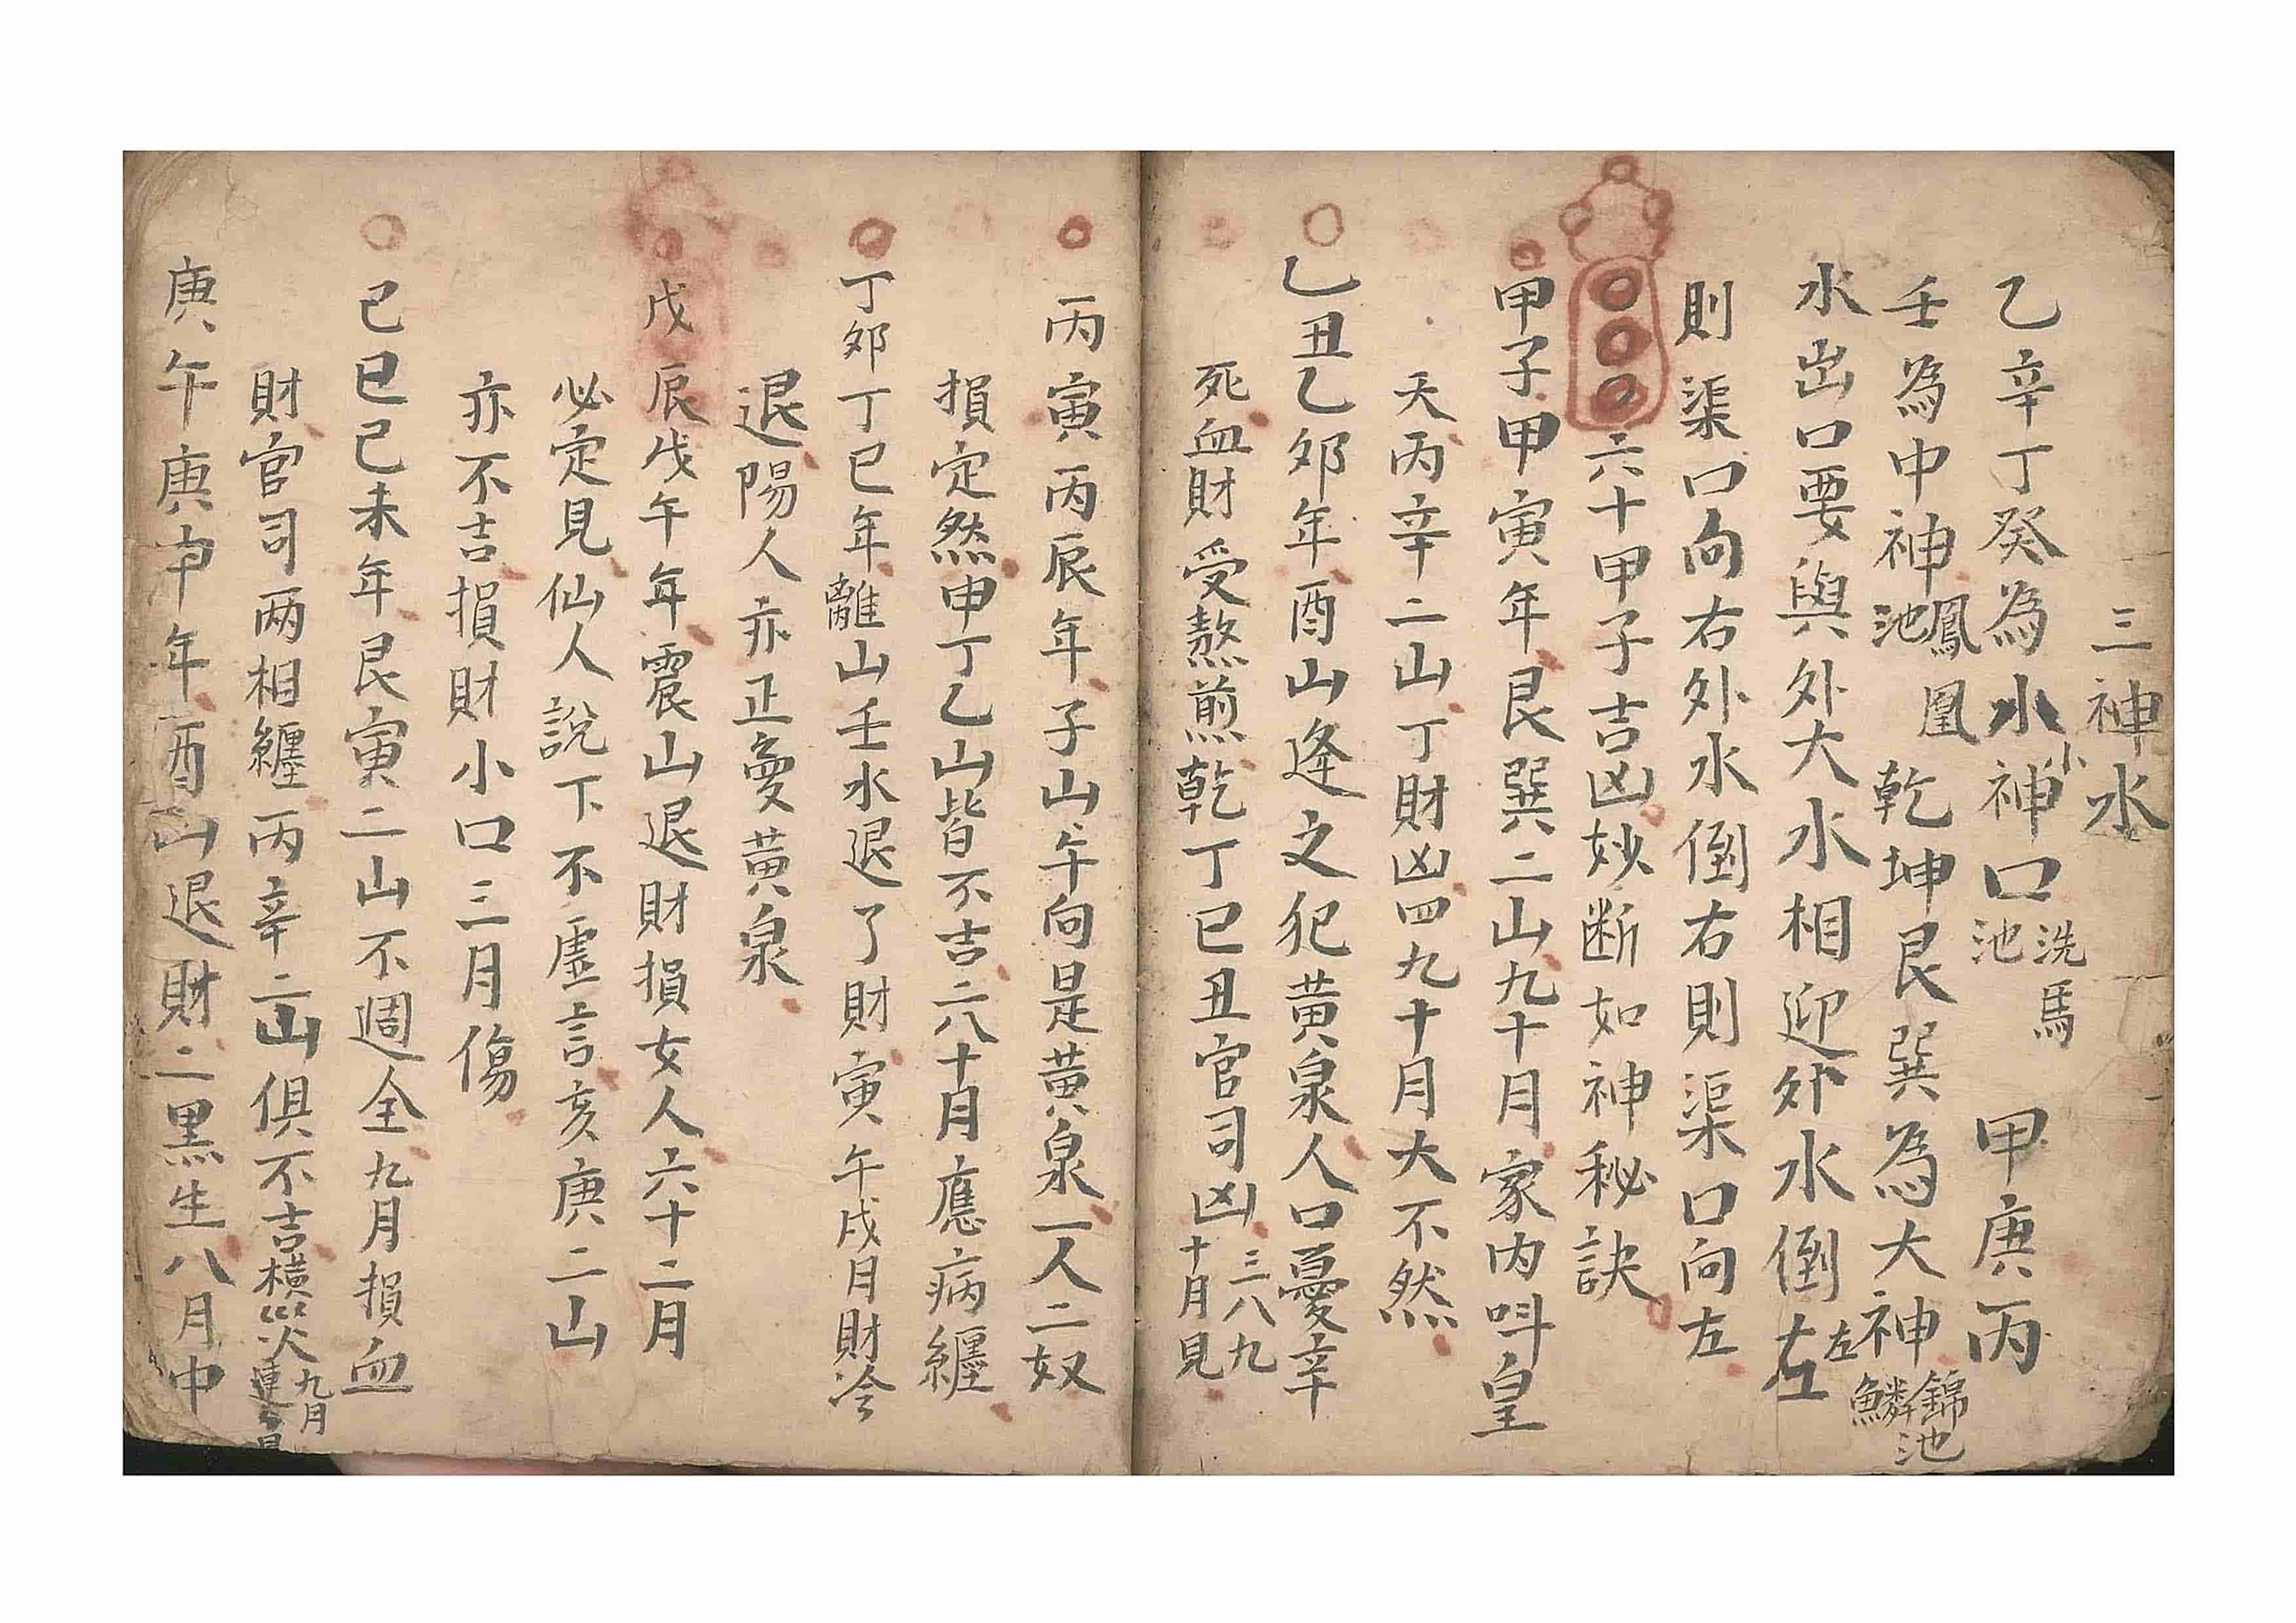 三神水
乙辛丁癸為水小神口洗馬池 甲庚丙
壬為中神鳳凰池 乾坤艮巽為大神錦鱗魚池
水出口要與外大水相迎外水倒左左
則渠口向右外水倒右則渠口向左
六十甲子吉凶妙断如神秘訣
甲子甲寅年艮巽二山九十月家內呌皇
天丙辛二山丁財凶四九十月大不然
乙丑乙卯年酉山逢之犯黃泉人口憂辛
死血財受熬煎乾丁巳丑官司凶三八九十月見
丙寅丙辰年子山午向是黃泉一人二奴
損定然申丁乙山皆不吉二八十月應病纏
丁卯丁巳年離山壬水退了財寅午戌月財冷
退陽人亦正憂黃泉
戊辰戊午年震山退財損女人六十二月
必定見仙人說下不虛言亥庚二山
亦不吉損財小口三月傷
己巳己未年艮寅二山不週全九月損血
財官司两相纏丙辛二山俱不吉橫災九月連
庚午庚申年酉山退財二黑生八月中